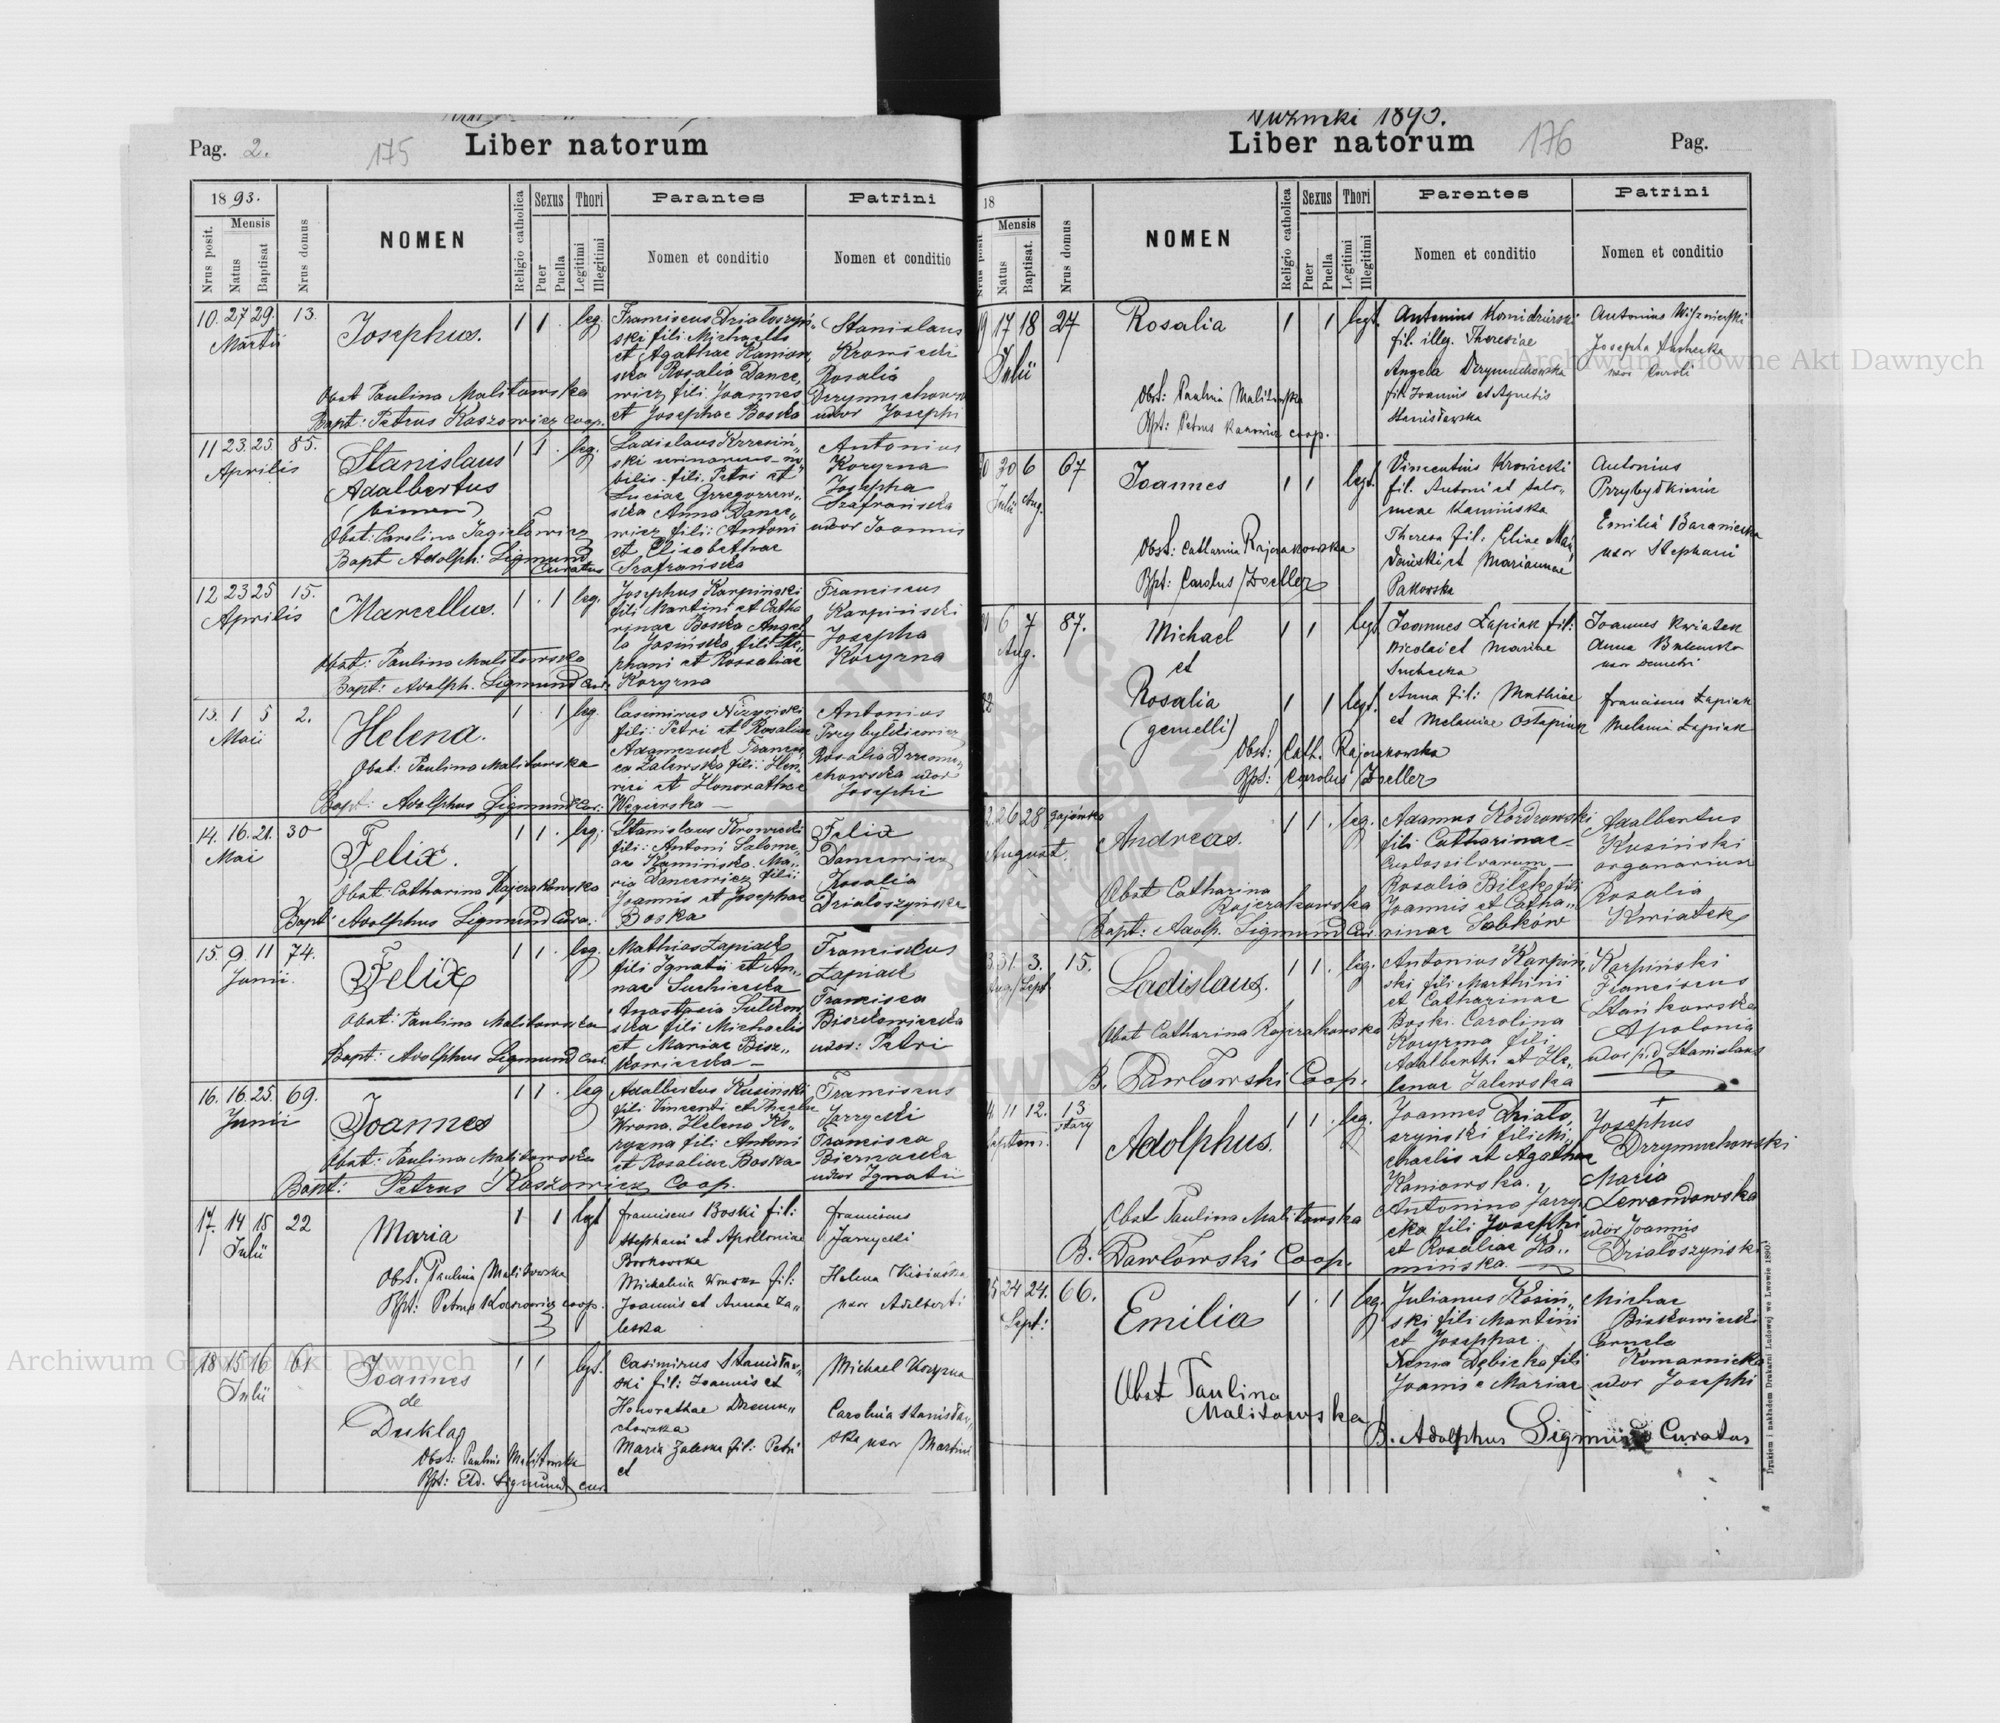 Pag. 2.
175
Liber natorum
1893.
Mensis
Nrus posit.
Natus
Baptisat
Nrus domus
NOMEN
Religio catholica
Sexus
Puer
Puella
Thori
Legitimi
Illegitimi
Parantes
Nomen et conditio
Patrini
Nomen et conditio
10. 27 29. 13.
Martii
Josephus.
1 1 . leg.
Obst Paulina Malitowska
Bapt: Petrus Kaszowicz coop.
Franciscus Działoszyń„
ski fili Michaelis
et Agathae Kaniow
ska Rosalia Dance„
wicz fili: Joannes
et Josephae Boska
Stanislaus
Krowicki
Rosalia
Drzymuchows
uxor Josephi
11 23. 25. 85.
Aprilis
Stanislaus
Adalbertus
1 1 . leg.
Obst: Carolina Jagiełowicz
Bapt Adolph: Sigmund
Curatus
bilis fili. Petri et
Luciae Grzegorzew„
ska Anna Dance„
wicz fili: Antoni
et Elisabethae
Szafrańska
Antonius
Koryzna
Josepha
Szafrańska
uxor Joannis
12 23 25 15.
Aprilis
Marcellus.
1 . 1 leg.
Obst: Paulina Malitowska
Bapt: Adolph. Sigmund Cur.
Josephus Karpiński
fili Martini et Catha
rinae Boska Angel
la Jasińska fili Ste
phani et Rossaliae
Koryzna
Franciscus
Karpiński
Josepha
Koryzna
13. 1 5 2.
Maii
Helena.
1 . 1 leg.
Obst: Paulina Malitowska
Bapt: Adolphus Sigmund Cur:
Casimirus
fili: Petri et Rosaliae
Adamczuk Francis
ca Zalewska fili: Hen„
rici et Honorathae
Węgierska —
Antonius
Przybyłkiewicz
Rosalia Drzemu
chowska uxor
Josephi
14. 16. 21. 30
Mai
Felix.
1 1 . leg.
Obst: Catharina Rajczakowska
Bapt: Adolphus Sigmund Cura.:
Stanislaus Krowicki
fili: Antoni Salome„
ae Kamińska. Ma„
ria Dancewicz fili:
Joannis et Josephae
Boska
Felix
Dancewicz
Rosalia
Działoszyńska
15. 9. 11 74.
Junii.
Felix
1 1 . leg.
Obst: Paulina Malitowska
Bapt: Adolphus Sigmund Cur.
Mathias Łapiak
fili Ignatii et An„
nae Suchicka
Anastasia Sulkow
ska fili Michaelis
et Mariae Bisz„
kowiecka —
Franciskus
Łapiak
Francisca
Biszkowiecka
uxor: Petri
16. 16. 25. 69.
Junii
Joannes
1 1 . leg
Obst: Paulina Malitowska
Bapt: Petrus Kaszowicz Coop.
Adalbertus Kusiński
fili Vincenti et Theclae
Wrona. Helena Ko„
ryzna fili Antoni
et Rosaliae Boska
Franciscus
Jarzycki
Francisca
Biernacka
uxor Ignatii
17. 14 15 22
Julii
Maria
1 1 legt
Obst. Paulina Malitowska
Bpt: Petrus Kaszowicz coop.
Franciscus Boski fil:
Stephani et Apolloniae
Borkowska
Michalina Wrona fil:
Joannis et Annae Za„
leska
Franciscus
Jarzycki
Helena Kisińska
uxor Adalberti
18 15 16 61
Julii
Joannes
de
Dukla
1 1 legt.
Obst: Paulina Malitowska
Bpt: Ad. Sigmund cur.
Casimirus Stanisław„
ski fil: Joannis et
Honorathae Drzemu„
chowska
Maria Zaleska fil: Petri
et
Michael Koryzna
Carolina Stanisław„
ska uxor Martini
1893.
Liber natorum
176
Pag.
18
Mensis
Nrus posit.
Natus
Baptisat.
Nrus domus
NOMEN
Religio catholica
Sexus
Puer
Puella
Thori
Legitimi
Illegitimi
Parentes
Nomen et conditio
Patrini
Nomen et conditio
19 17 18 27
Julii
Rosalia
1 1 legt.
Obst: Paulina Malitowska
Bpt: Petrus Kaszowicz coop.
Antonius
fil. illeg. Theresiae
Angela Drzymuchowska
fil. Joannis et Agnetis
Stanisławska
Antonius Wiszniewski
Josepha Suchecka
uxor Caroli
20 30 6 67
Julii Aug.
Joannes
1 1 legt.
Obst: Catharina Rajczakowska
Bpt: Carolus Zoeller
Vincentius Krowicki
fil. Antoni et Salo„
meae Kamińska
Theresa fil. Eliae
et Mariannae
Pakowska
Antonius
Przybyłkiewicz
Emilia Baraniecka
uxor Stephani
21 6 7 87.
Aug.
Michael
et
Rosalia
(gemelli)
1 1 legt
22
1 1 legt.
Obst: Cath. Rajczakowska
Bpt: Carolus Zoeller
Joannes Łapiak fil:
Nicolai et Mariae
Suchecka
Anna fil: Mathiae
et Melaniae Ostapiuk
Joannes Kwiatek
Anna
uxor Demetri
Franciscus Łapiak
Melania Łapiak
22. 26 28 gajówka
August.
Andreas.
1 1 . leg.
Obst Catharina
Rajczakowska
Bapt: Adolp. Sigmund Cur.
Adamus Kordzowski
fili Catharinae
Custos silvarum —
Rosalia Bilek fili
Joannis et Catha„
rinae Sobków
Adalbertus
Kusiński
organarius
Rosalia
Kwiatek
23. 31. 3. 15.
Aug./Sept
Ladislaus.
1 1 . leg.
Obst Catharina Rajczakowska
B. Pawłowski Coop.
Antonius Karpiń„
ski fili Marthini
et Catharinae
Boski. Carolina
Koryzna fili
Adalberthi et He„
lenae Zalewska
Karpiński
Franciscus
Stańkowska
Apolonia
uxor p.d. Stanislaus
24 11 12. 13
Septem. stary
Adolphus.
1 1 . leg.
Obst Paulina Malitowska
B. Pawłowski Coop.
Joannes Działo„
szyński fili Mi„
chaelis et Agathae
Kaniowska.
Antonina Jarzy„
cka fili Josephi
et Rosaliae Ka„
mińska. —
Josephus
Drzymuchowski
Maria
Lewandowska
uxor Joannis
Działoszyński
25 24 24. 66.
Sept:
Emilia
1 . 1 leg.
Obst Paulina
Malitowska
B. Adolphus Sigmund Curatus
Julianus Kosiń„
ski fili Martini
et Josephae.
Dębicka fili
Joanis e Mariae
Michae
Biskowiecki
Carnela
Komarnicka
uxor Josephi
Drukiem i nakładem Drukarni Ludowej we Lwowie 1890.
Archiwum Główne Akt Dawnych
Archiwum Główne Akt Dawnych